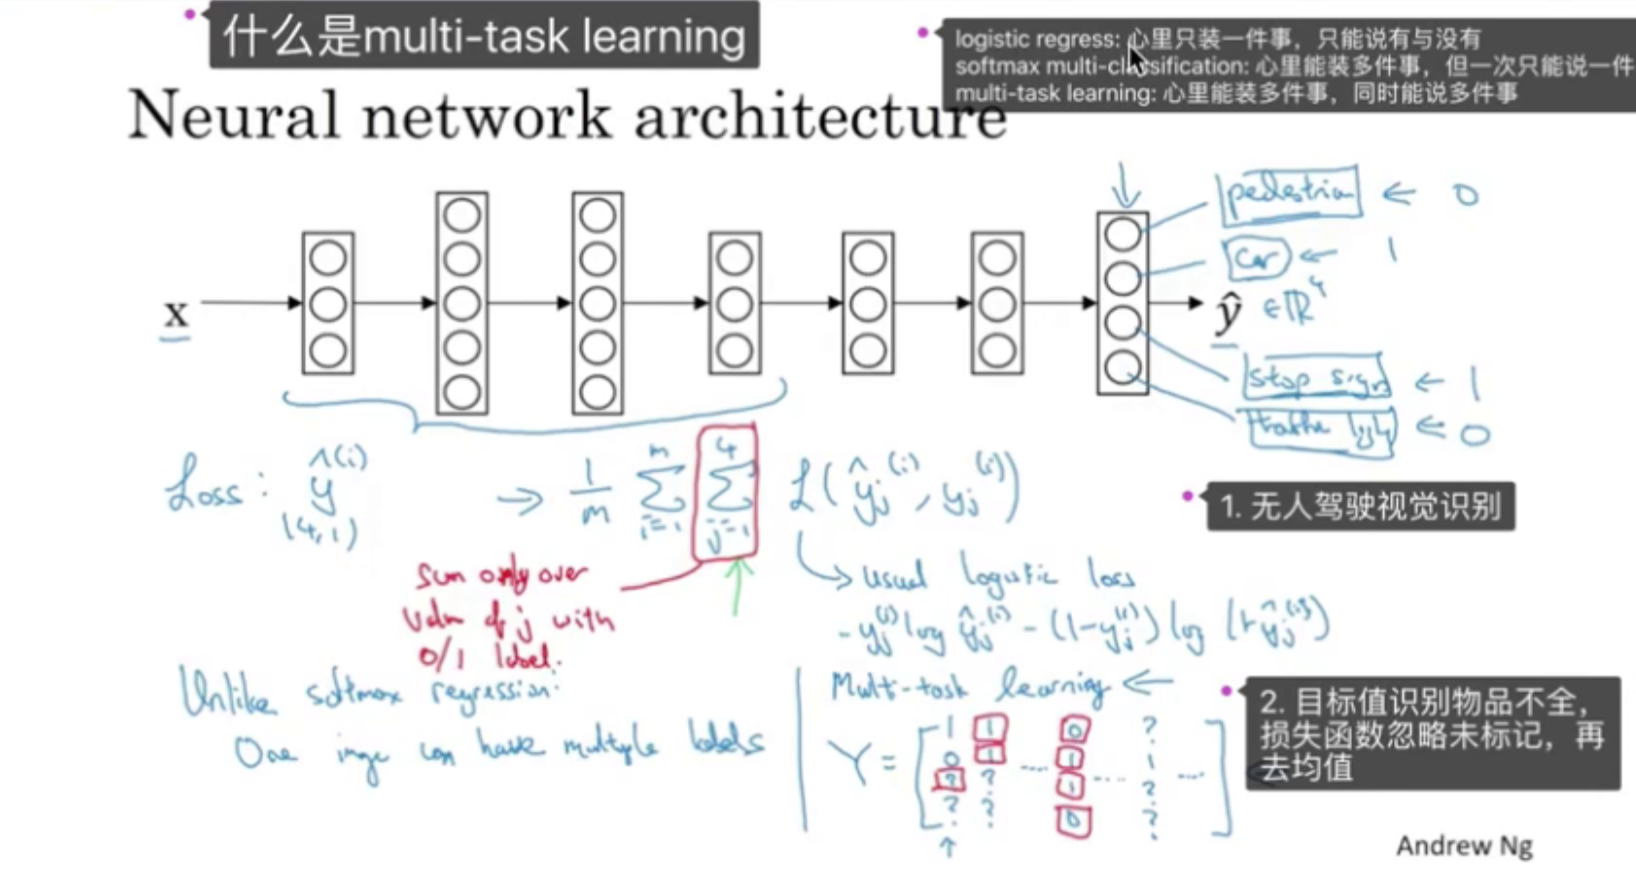 什么是multi-task learning
logistic regress: 心里只装一件事，只能说有与没有
softmax multi-classification: 心里能装多件事，但一次只能说一件
multi-task learning: 心里能装多件事，同时能说多件事
Neural network architecture
pedestrian ← 0
car ← 1
x
ŷ ∈ℝ⁴
stop sign ← 1
traffic light ← 0
Loss: ŷ⁽ⁱ⁾ → 1/m Σᵢ₌₁ᵐ Σⱼ₌₁⁴ ℒ(ŷⱼ⁽ⁱ⁾, yⱼ⁽ⁱ⁾)
(4,1)
1. 无人驾驶视觉识别
Sum only over
value of j with
0/1 label.
usual logistic loss
-yⱼ⁽ⁱ⁾ log ŷⱼ⁽ⁱ⁾ - (1-yⱼ⁽ⁱ⁾) log (1-ŷⱼ⁽ⁱ⁾)
Unlike softmax regression:
One image can have multiple labels
Multi-task learning ←
2. 目标值识别物品不全，
损失函数忽略未标记，再
去均值
Y = [
1 1 0 ?
0 1 ... 1 1 ...
? ? 1 ... ?
? ? 0 ?
]
Andrew Ng